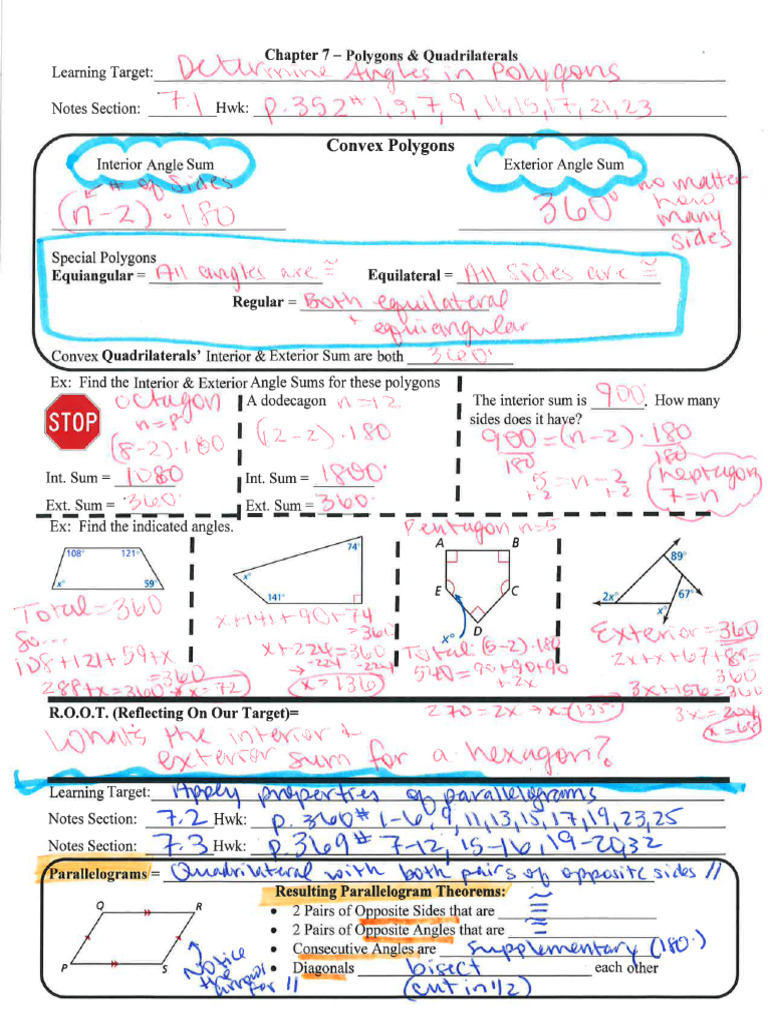 Chapter 7 – Polygons & Quadrilaterals
Learning Target: Determine Angles in Polygons
Notes Section: 7.1 Hwk: p.352 # 1, 3, 7, 9, 11, 15, 17, 21, 23
Convex Polygons
Interior Angle Sum Exterior Angle Sum
# of sides
(n-2)·180 360° no matter how many sides
Special Polygons
Equiangular = All angles are ≅ Equilateral = All sides are ≅
Regular = Both equilateral
+ equiangular
Convex Quadrilaterals' Interior & Exterior Sum are both 360°
Ex: Find the Interior & Exterior Angle Sums for these polygons
STOP
octagon
n=8
(8-2)·180
Int. Sum = 1080
Ext. Sum = 360°
A dodecagon n=12
(12-2)·180
Int. Sum = 1800°
Ext. Sum = 360°
The interior sum is 900°. How many
sides does it have?
900 = (n-2)·180
180 180
5 = n-2
+2 +2
heptagon
7=n
Ex: Find the indicated angles.
108° 121°
x° 59°
Total = 360
So...
108+121+59+x
=360
288+x=360 x=72
74°
x°
141°
x+141+90+74
=360
x+224=360
-224 -224
x=136
Pentagon n=5
A B
E C
D
x°
Total: (5-2)·180
540=90+90+90
+2x
270=2x → x=135
89°
2x° 67°
x°
Exterior = 360
2x+x+67+89=
360
3x+156=360
3x=204
x=68
R.O.O.T. (Reflecting On Our Target)=
What's the interior +
exterior sum for a hexagon?
Learning Target: Apply properties of parallelograms
Notes Section: 7.2 Hwk: p.360# 1-6, 9, 11, 13, 15, 17, 19, 23, 25
Notes Section: 7.3 Hwk: p.369# 7-12, 15-16, 19-20, 32
Parallelograms = Quadrilateral with both pairs of opposite sides //
Resulting Parallelogram Theorems:
• 2 Pairs of Opposite Sides that are ≅
• 2 Pairs of Opposite Angles that are ≅
• Consecutive Angles are supplementary (180°)
• Diagonals bisect each other
(cut in 1/2)
Q R
P S
Notice
the
arrows
for //